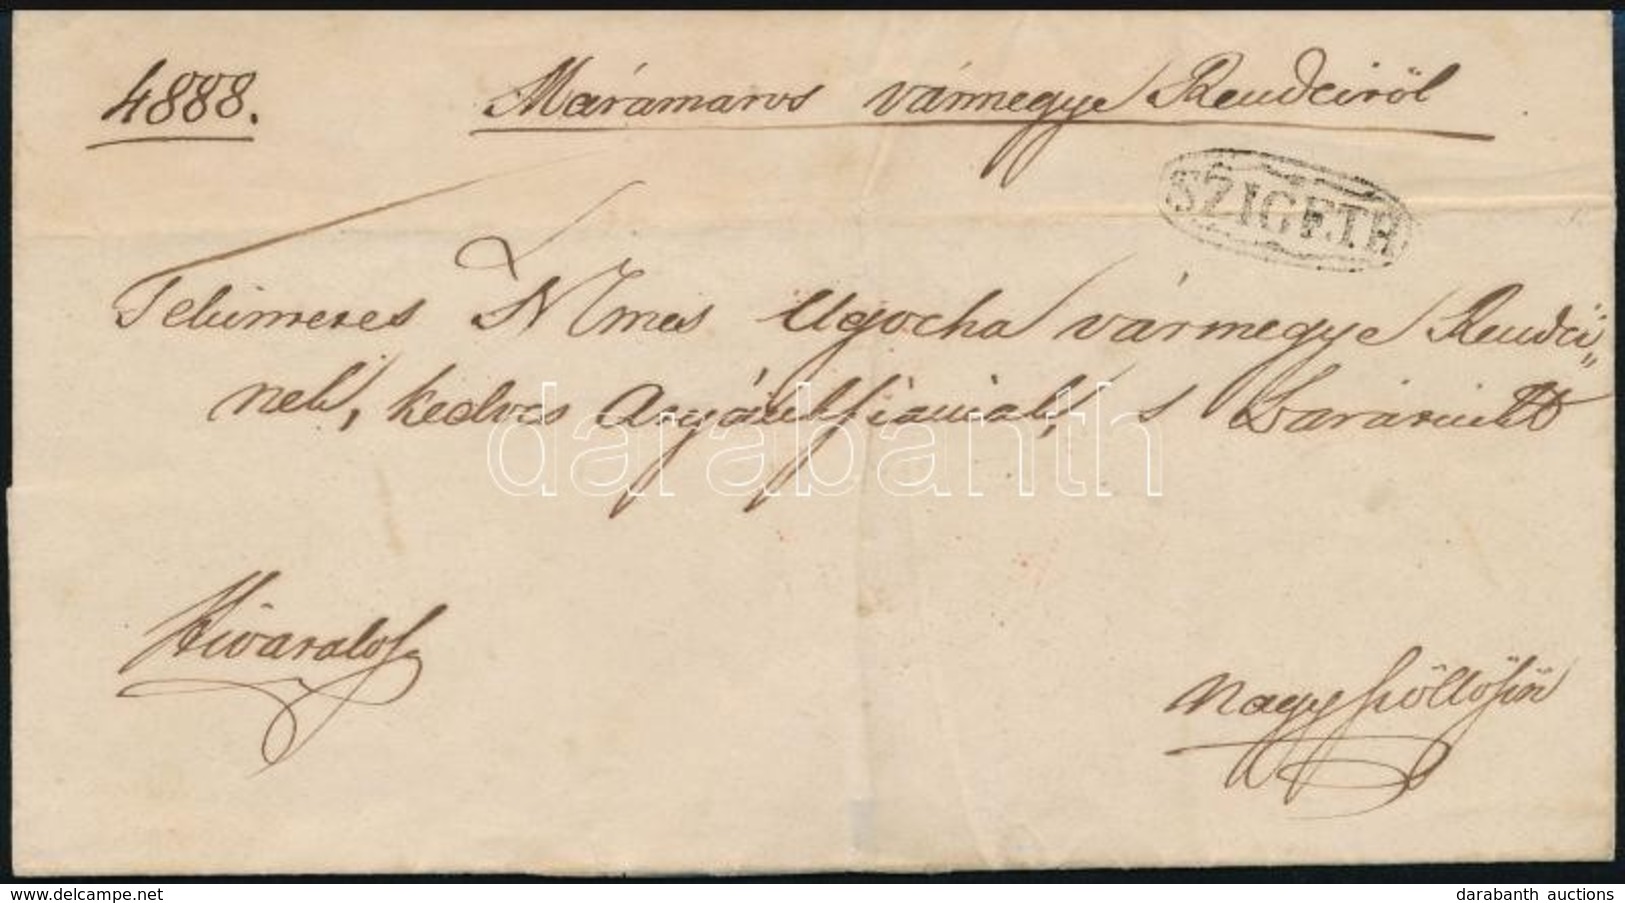 4888. Marámaros vármegye Rendeiröl
SZIGETH
Tekintetes N Emes Ugocha vármegye Rendei„
nek, kedves Atyánkfiainak, s Barátink
Hivatalos
Nagyszöllösön
darabanth
www.delcampe.net
darabanth auctions